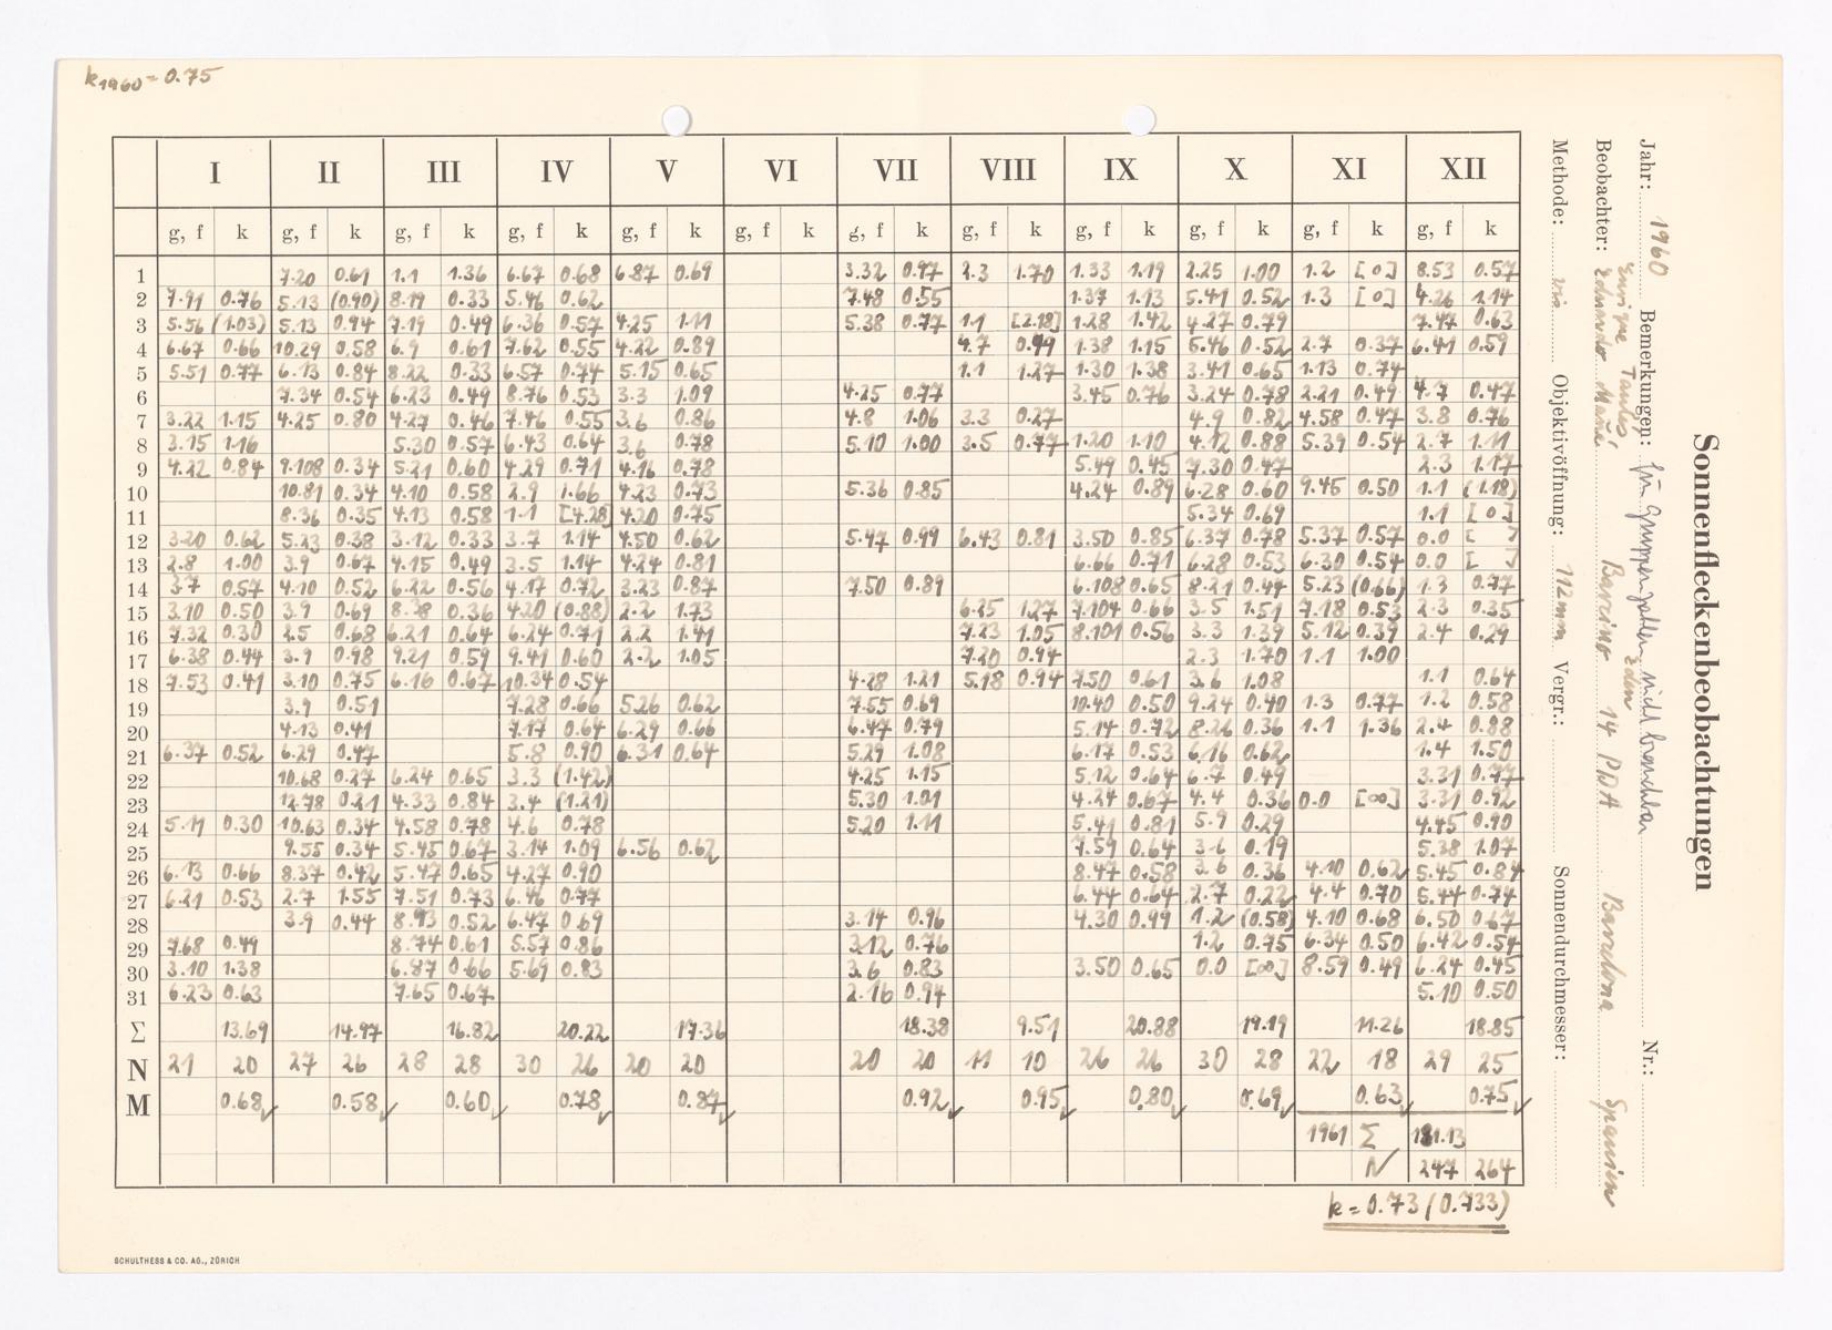 k1960 = 0.75
Sonnenfleckenbeobachtungen
Jahr: 1960 Bemerkungen: für Gruppenzahlen nicht brauchbar Nr.:
Enrique Tantos,
Beobachter: Eduardo Mañé, Barcelona Spanien
Methode: Objektivöffnung: 112mm Vergr.: Sonnendurchmesser:
I II III IV V VI VII VIII IX X XI XII
g, f k g, f k g, f k g, f k g, f k g, f k g, f k g, f k g, f k g, f k g, f k g, f k
1 7.20 0.61 1.1 1.36 6.67 0.68 6.87 0.69 3.32 0.97 2.3 1.70 1.33 1.19 2.25 1.00 1.2 [0] 8.53 0.57
2 7.91 0.76 5.13 (0.90) 8.19 0.33 5.46 0.62 7.48 0.55 1.37 1.13 5.41 0.52 1.3 [0] 4.26 1.14
3 5.56 (1.03) 5.13 0.94 7.19 0.49 6.36 0.57 4.25 1.11 5.38 0.77 1.1 [2.18] 1.28 1.42 4.27 0.79 7.47 0.63
4 6.67 0.66 10.29 0.58 6.9 0.61 7.62 0.55 4.22 0.89 4.7 0.99 1.38 1.15 5.46 0.52 2.7 0.37 6.41 0.59
5 5.51 0.77 6.13 0.84 8.22 0.33 6.57 0.74 5.15 0.65 1.1 1.27 1.30 1.38 3.41 0.65 1.13 0.74
6 7.34 0.54 6.23 0.49 8.76 0.53 3.3 1.09 4.25 0.77 3.45 0.76 3.24 0.78 2.21 0.49 4.7 0.47
7 3.22 1.15 4.25 0.80 4.27 0.46 7.46 0.55 3.6 0.86 4.8 1.06 3.3 0.27 4.9 0.82 4.58 0.47 3.8 0.76
8 3.15 1.16 5.30 0.57 6.43 0.64 3.6 0.78 5.10 1.00 3.5 0.77 1.20 1.10 4.12 0.88 5.39 0.54 2.7 1.11
9 4.22 0.84 9.108 0.34 5.21 0.60 4.29 0.71 4.16 0.78 5.49 0.45 7.30 0.47 2.3 1.17
10 10.81 0.34 4.10 0.58 2.9 1.66 4.23 0.73 5.36 0.85 4.24 0.89 6.28 0.60 9.45 0.50 1.1 (1.18)
11 8.36 0.35 4.13 0.58 1.1 [4.28] 4.20 0.75 5.34 0.69 1.1 [0]
12 3.20 0.62 5.23 0.38 3.12 0.33 3.7 1.14 4.50 0.62 5.47 0.99 6.43 0.81 3.50 0.85 6.37 0.78 5.37 0.57 0.0 [ ]
13 2.8 1.00 3.9 0.67 4.15 0.49 3.5 1.14 4.24 0.81 6.66 0.71 6.28 0.53 6.30 0.54 0.0 [ ]
14 3.7 0.57 4.10 0.52 6.22 0.56 4.17 0.72 3.23 0.87 7.50 0.89 6.108 0.65 8.21 0.44 5.23 (0.66) 1.3 0.77
15 3.10 0.50 3.9 0.69 8.38 0.36 4.20 (0.88) 2.2 1.73 6.25 1.27 7.104 0.66 3.5 1.51 7.18 0.53 2.3 0.35
16 7.32 0.30 2.5 0.68 6.21 0.64 6.24 0.71 2.2 1.41 7.23 1.05 8.101 0.56 3.3 1.39 5.12 0.39 2.4 0.29
17 6.38 0.44 3.9 0.98 9.21 0.59 9.41 0.60 2.2 1.05 7.20 0.94 2.3 1.70 1.1 1.00
18 7.53 0.41 3.10 0.75 6.16 0.67 10.34 0.54 4.28 1.21 5.18 0.94 7.50 0.61 3.6 1.08 1.1 0.64
19 3.9 0.51 7.28 0.66 5.26 0.62 7.55 0.69 10.40 0.50 9.24 0.40 1.3 0.77 1.2 0.58
20 4.13 0.41 7.17 0.64 6.29 0.66 6.47 0.79 5.14 0.72 8.26 0.36 1.1 1.36 2.4 0.88
21 6.37 0.52 6.29 0.47 5.8 0.90 6.31 0.64 5.29 1.08 6.17 0.53 6.16 0.62 1.4 1.50
22 10.68 0.27 6.24 0.65 3.3 (1.42) 4.25 1.15 5.12 0.64 6.7 0.49 3.31 0.77
23 12.78 0.21 4.33 0.84 3.4 (1.21) 5.30 1.01 4.24 0.67 4.4 0.36 0.0 [∞] 3.31 0.92
24 5.11 0.30 10.63 0.34 4.58 0.78 4.6 0.78 5.20 1.11 5.41 0.81 5.9 0.29 4.45 0.90
25 9.55 0.34 5.45 0.67 3.14 1.09 6.56 0.62 7.59 0.64 3.6 0.19 5.38 1.07
26 6.13 0.66 8.37 0.42 5.47 0.65 4.27 0.90 8.47 0.58 3.6 0.36 4.10 0.62 5.45 0.84
27 6.21 0.53 2.7 1.55 7.51 0.73 6.46 0.77 6.44 0.64 2.7 0.22 4.4 0.70 5.44 0.74
28 3.9 0.44 8.93 0.52 6.47 0.69 3.14 0.96 4.30 0.99 1.2 (0.58) 4.10 0.68 6.50 0.67
29 7.68 0.49 8.74 0.61 5.57 0.86 3.12 0.76 1.2 0.75 6.34 0.50 6.42 0.54
30 3.10 1.38 6.87 0.66 5.69 0.83 3.6 0.83 3.50 0.65 0.0 [∞] 8.59 0.49 6.24 0.45
31 6.23 0.63 7.65 0.67 2.16 0.94 5.10 0.50
Σ 13.69 14.97 16.82 20.22 17.36 18.38 9.51 20.88 19.19 11.26 18.85
N 21 20 27 26 28 28 30 26 20 20 20 20 11 10 26 26 30 28 22 18 29 25
M 0.68 0.58 0.60 0.78 0.87 0.92 0.95 0.80 0.69 0.63 0.75
1961 Σ 181.13
N 247 264
k = 0.73 (0.733)
SCHULTHESS & CO. AG., ZÜRICH